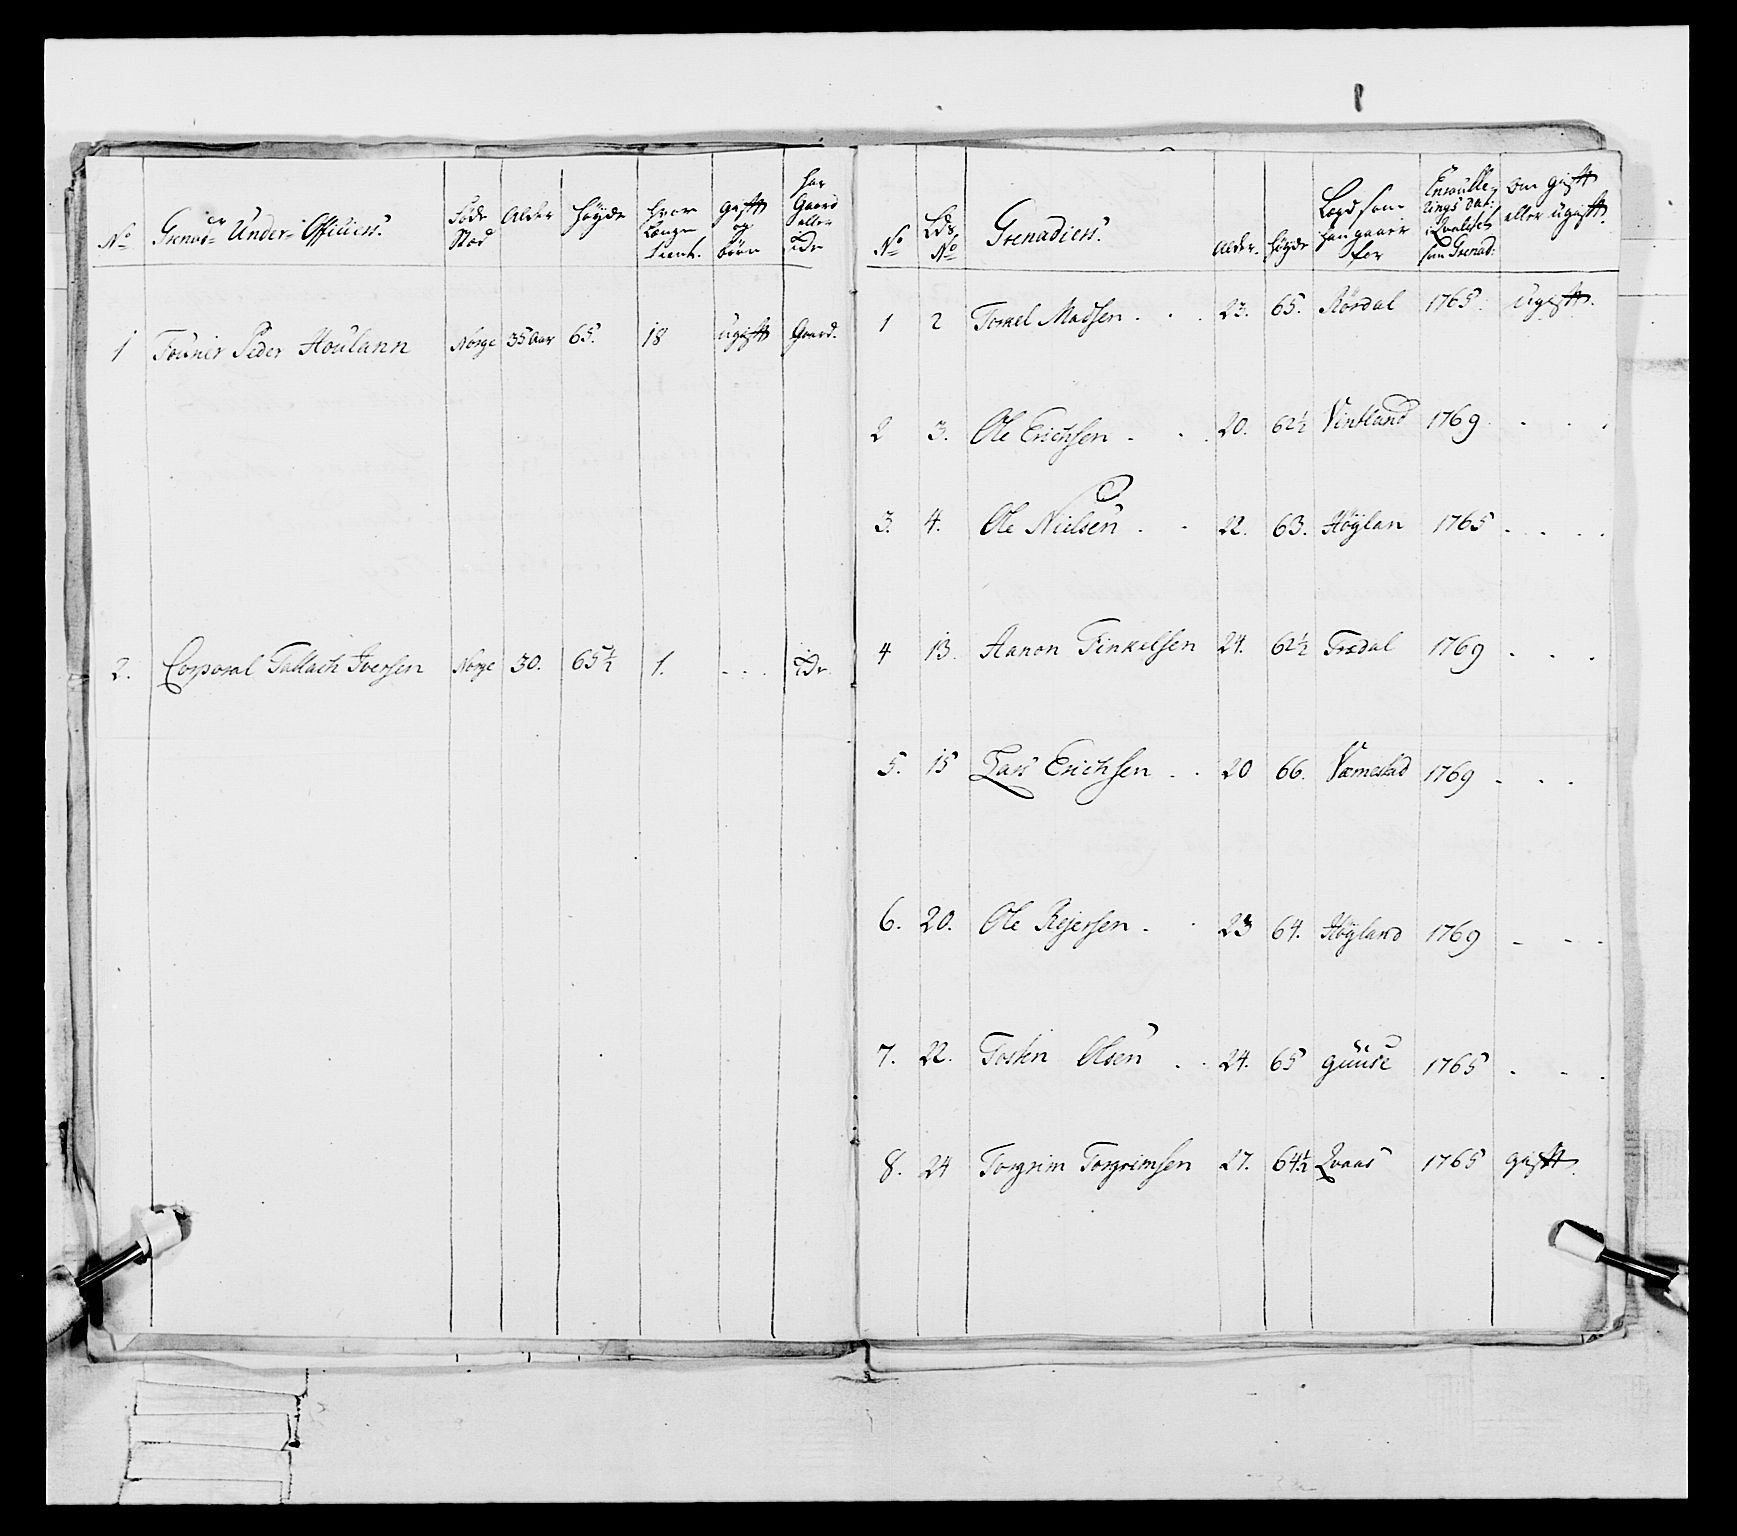 No Grenadier Under-Officiers. Føde Stæd Alder Høyde Hvor Længe tient. Gift og børn har Gaard eller Ide
1 Fourier Peder Houlann Norge 35 aar 65. 18 ugift Gaard.
2. Corporal Tallach Iversen Norge 30. 65½ 1. - - . Ide
No Lds No Grenadiers. Alder. høyde Lægd som han gaaer for Enrulle- som Grenad: om gift eller ugift.
1 2 Torkel Madsen . . . 23. 65. Rørdal 1765. Ugift.
2 3. Ole Erichsen . . . 20. 62½ Vintland 1769 . . . .
3. 4. Ole Nielsen . . 22. 63. Høylan 1765 . . . .
4 13. Aanon Tinkelsen 24. 62½ Trædal 1769 . . .
5. 15 Lars Erichsen . . 20 66. Væmestad 1769 - . .
6. 20. Ole Rejersen . . 23 64. Høyland 1769 - - .
7. 22. Tosten Olsen . . 24. 65 guuse 1765 . - .
8. 24 Torgrim Torgrimsen 27. 64½ Qvaas 1765 gift.